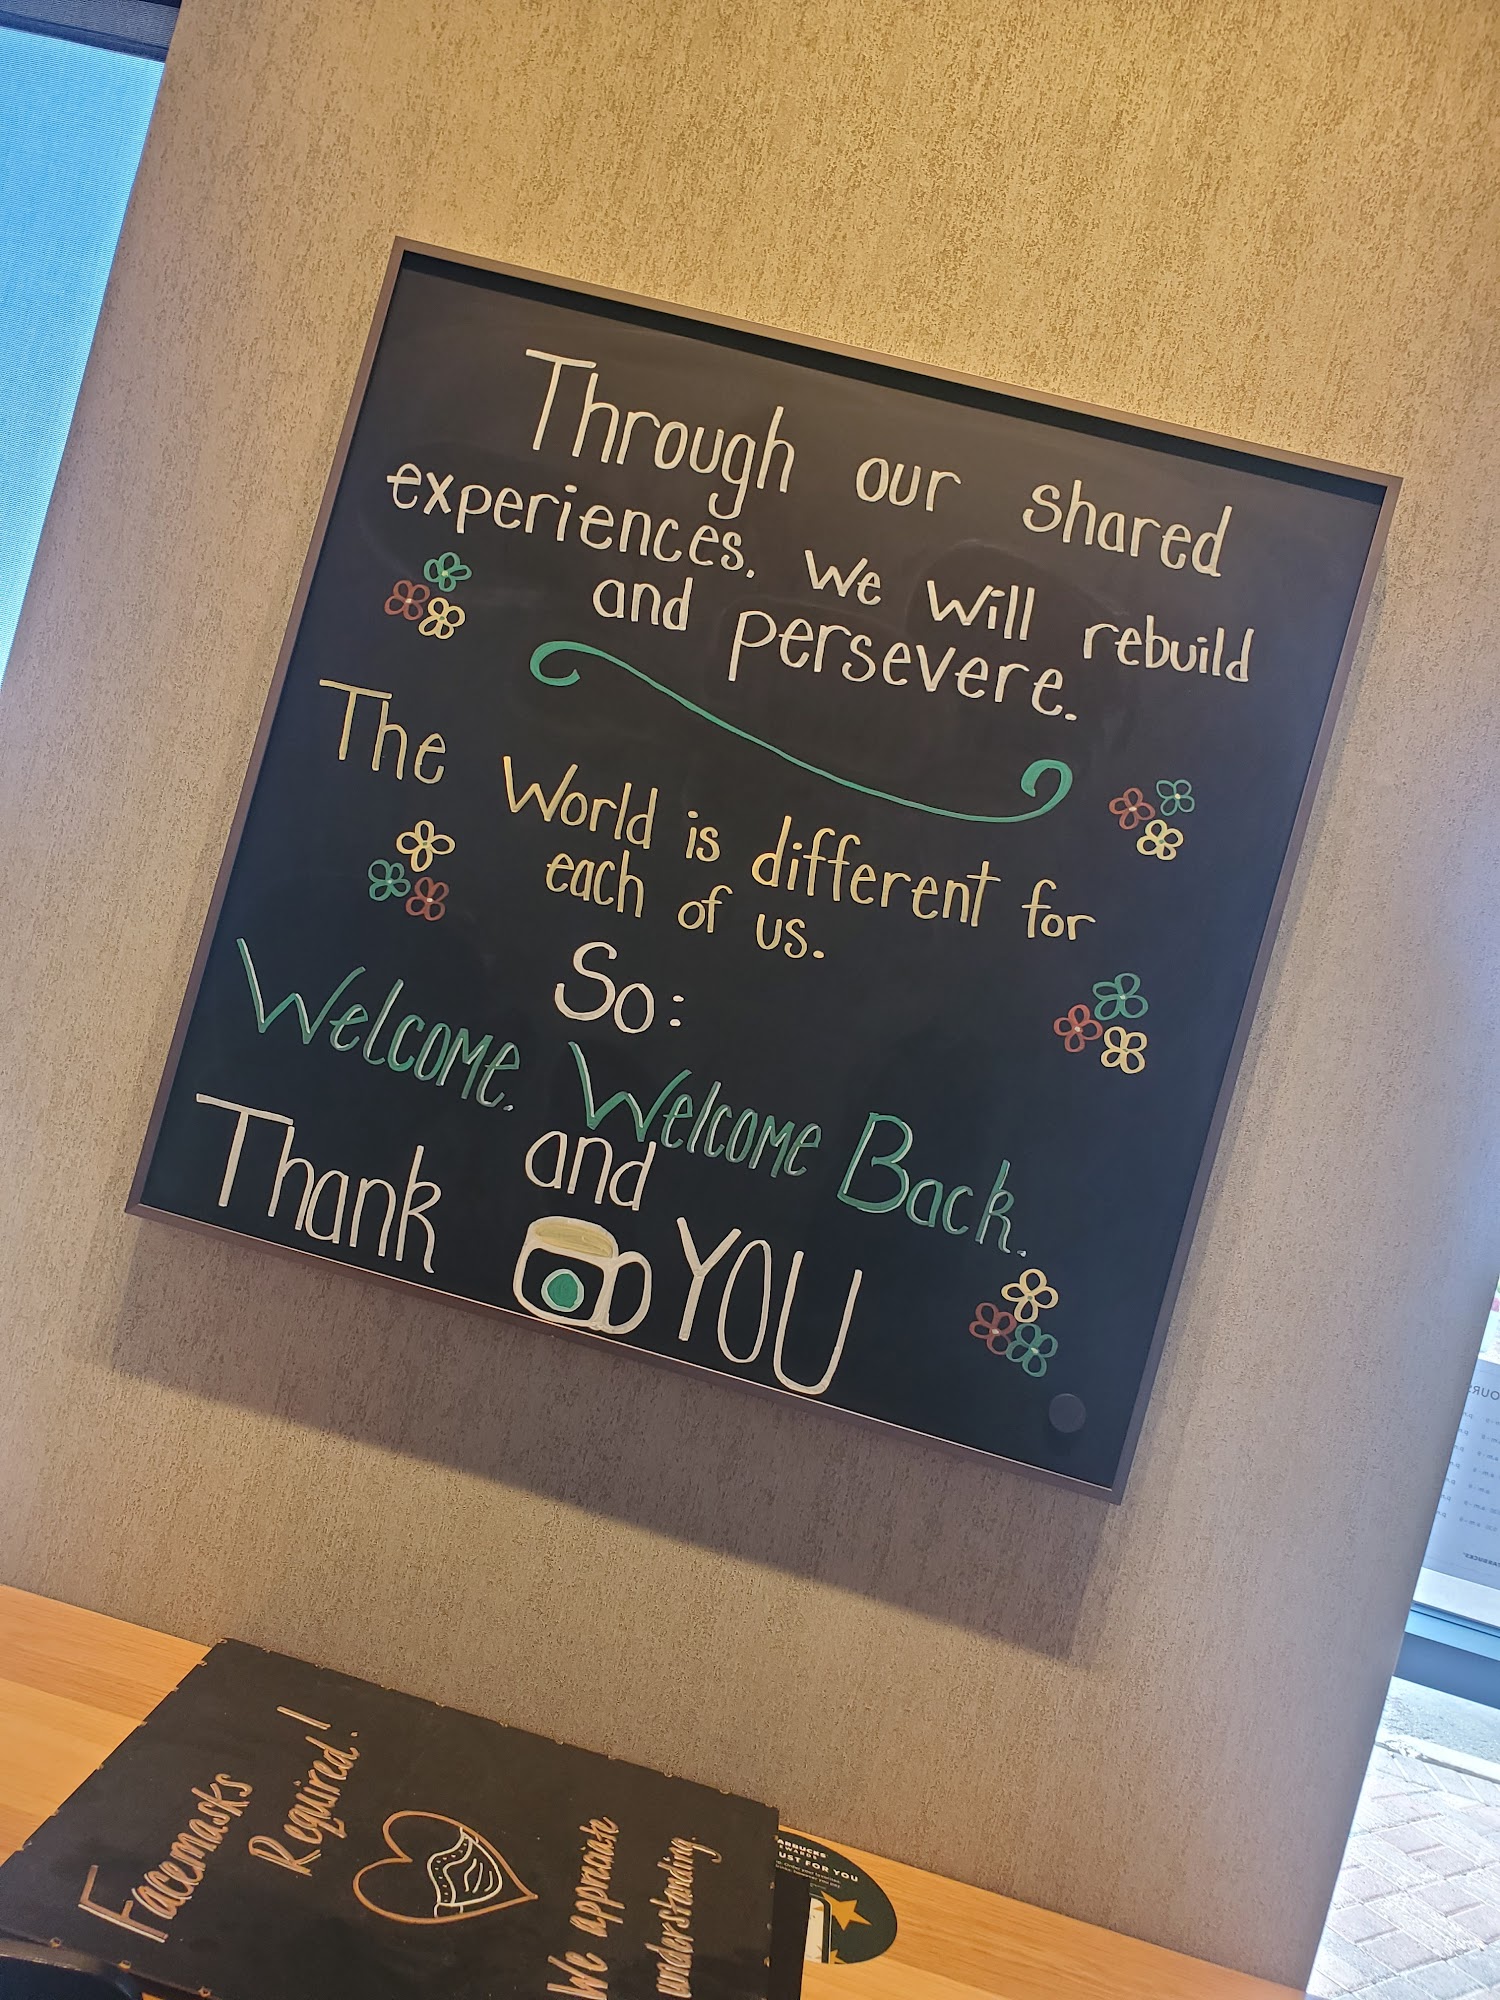 Through our shared
experiences, we will rebuild
and persevere.
The World is different for
each of us.
So:
Welcome. Welcome Back.
and
Thank YOU
Facemasks
Required!
We appreciate
understanding.
REWARDS
JUST FOR YOU